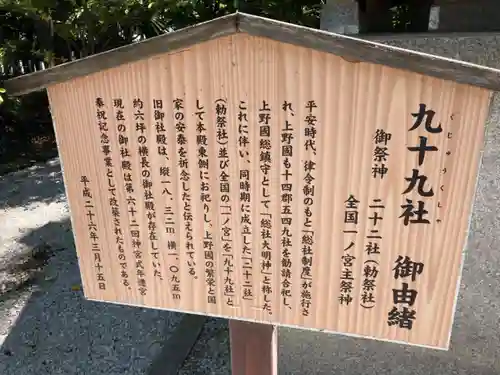 九十九社 御由緒
くじゅうくしゃ
御祭神 二十二社（勅祭社）
全国一ノ宮主祭神
平安時代、律令制のもと「総社制度」が施行さ
れ、上野國も十四郡五四九社を勧請合祀し、
上野國総鎮守として「総社大明神」と称した。
これに伴い、同時期に成立した「二十二社」
（勅祭社）並び全国の「一ノ宮」を「九十九社」と
して本殿東側にお祀りし、上野國の繁栄と国
家の安泰を祈念したと伝えられている。
旧御社殿は、縦一八．三二ｍ 横一．〇九五ｍ
約六坪の横長の御社殿が存在していた。
現在の御社殿は第六十二回神宮式年遷宮
奉祝記念事業として改築されたものである。
平成二十六年三月十五日